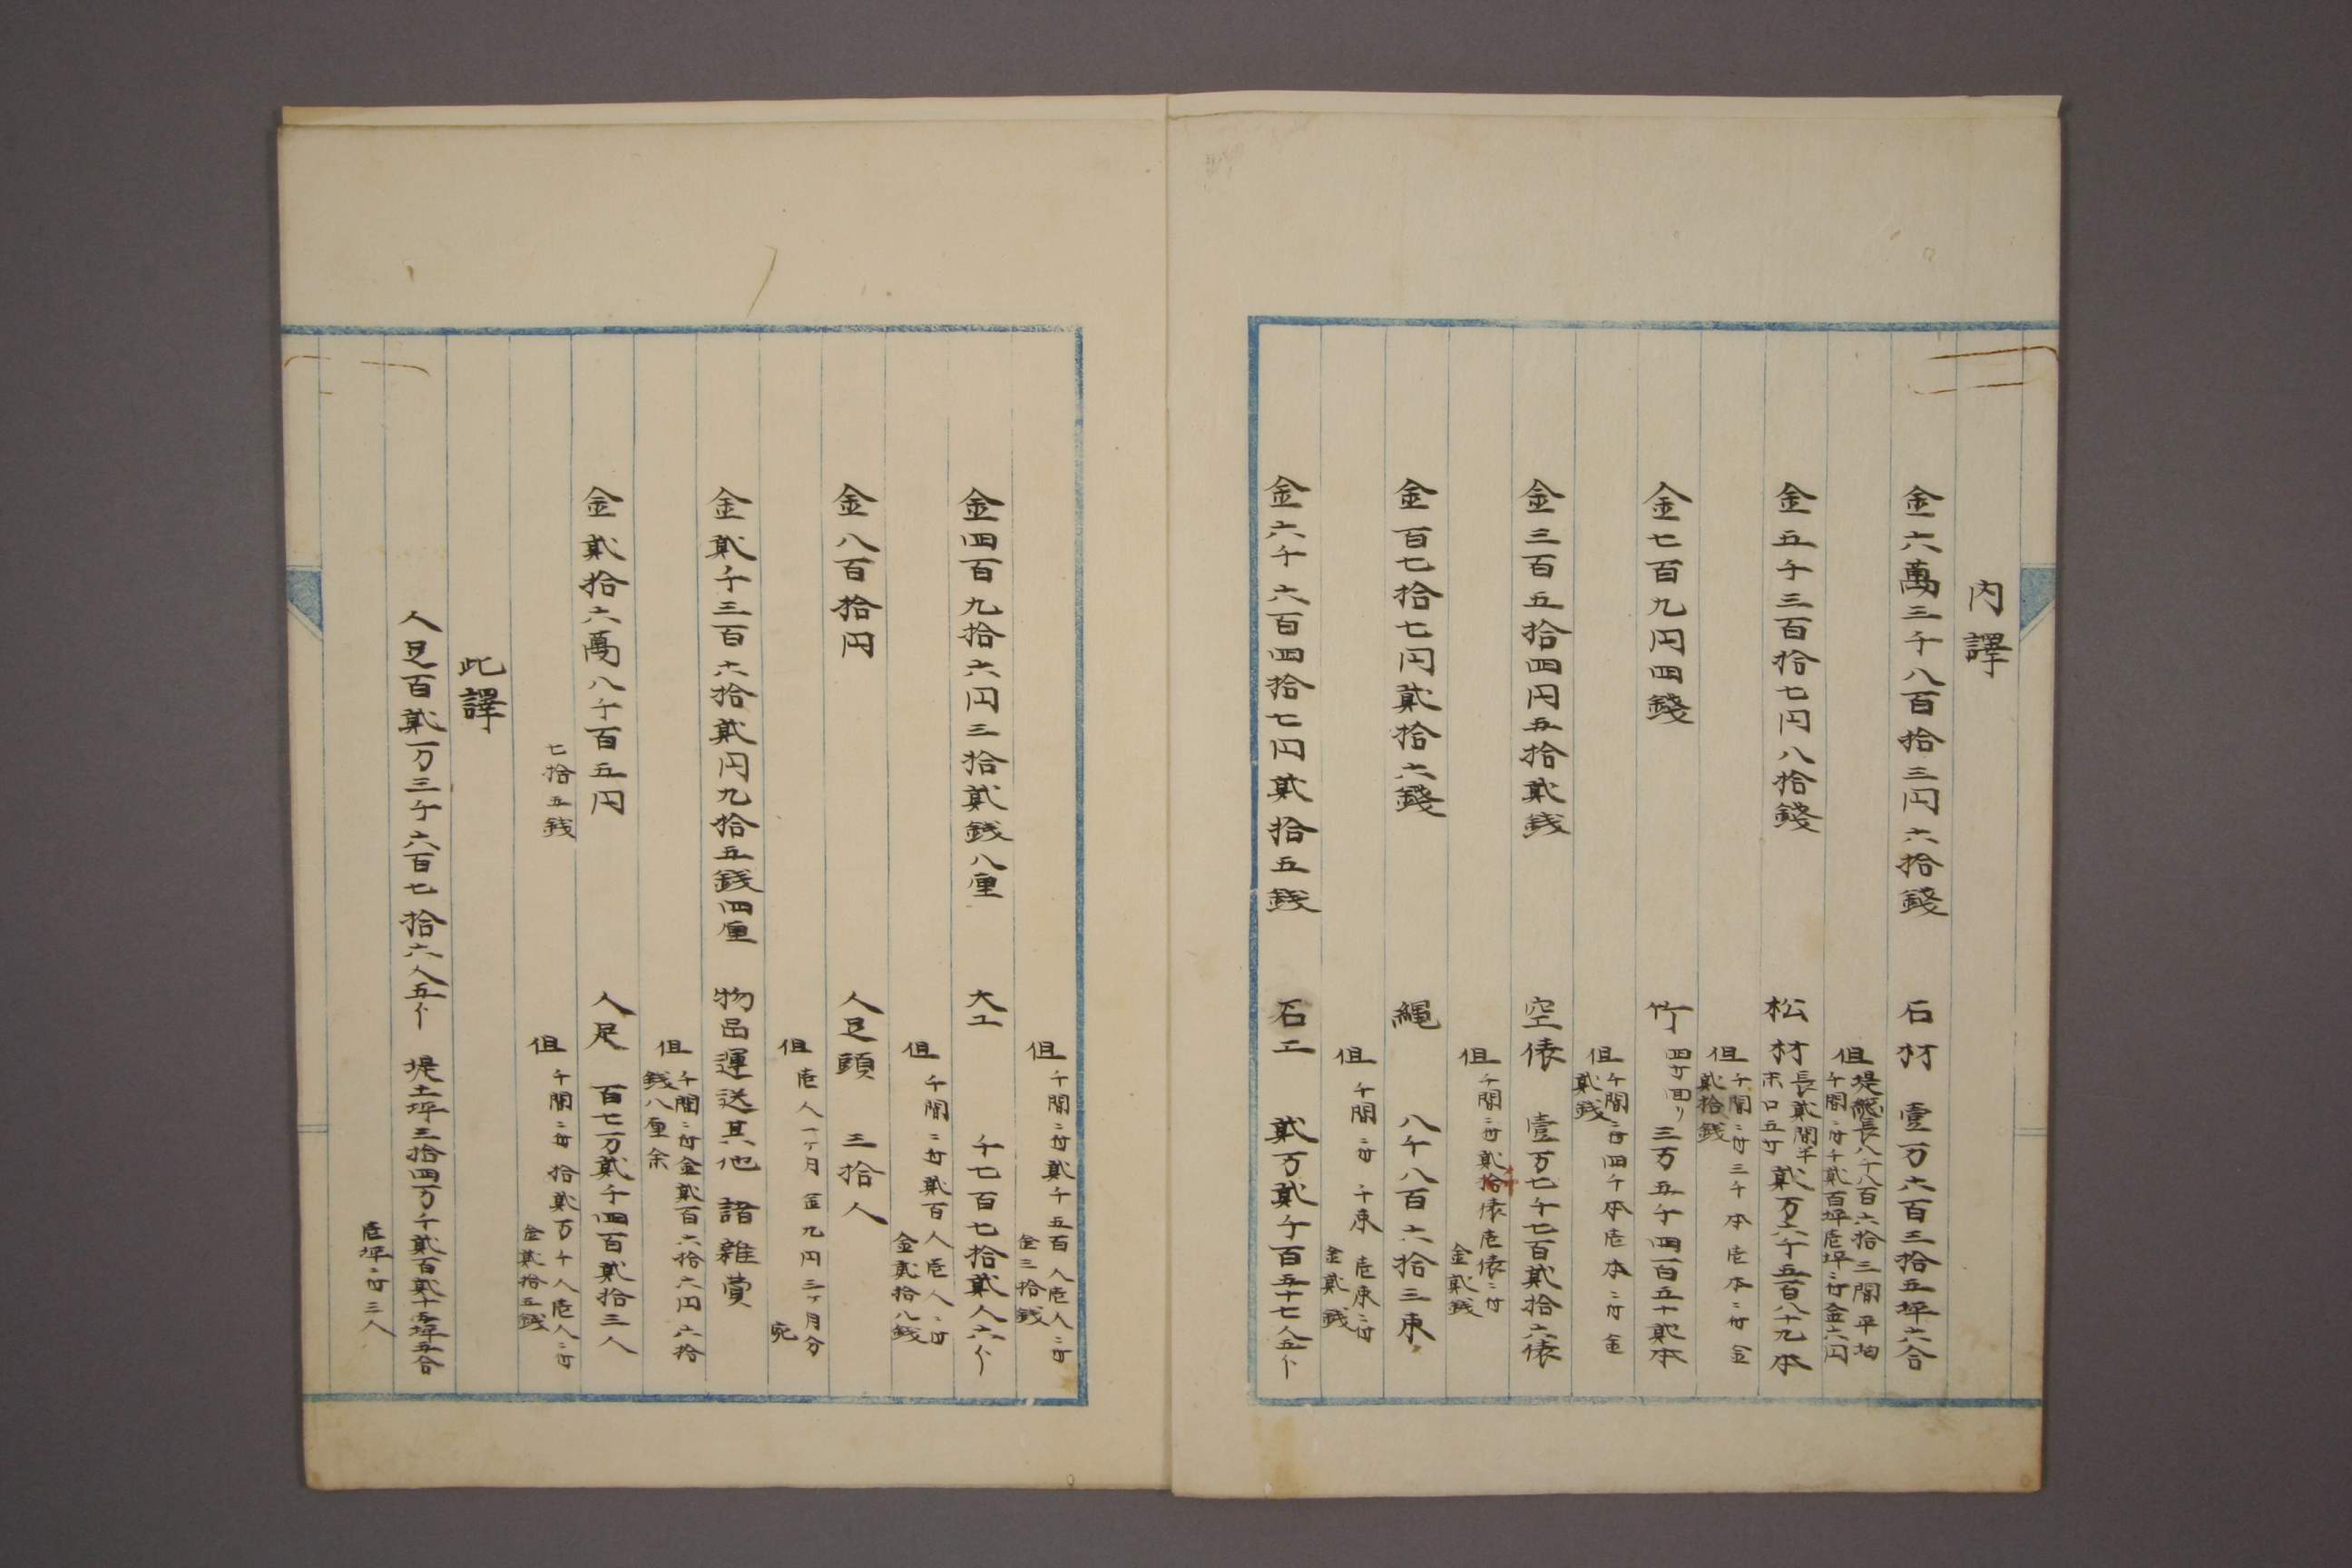 内譯
金六萬三千八百拾三円六拾錢 石材 壹万六百三拾五坪六合
但 堤総長八千八百六拾三間平均
千間ニ付千貳百坪壱坪ニ付金六円
金五千三百拾七円八拾錢 松材 長貳間半 末口五寸 貳万六千五百八十九本
但 千間ニ付三千本壱本ニ付金
貳拾銭
金七百九円四錢 竹 四寸回リ 三万五千四百五十貳本
但 千間ニ付四千本壱本ニ付金
貳銭
金三百五拾四円五拾貳銭 空俵 壹万七千七百貳拾六俵
但 千間ニ付貳千俵壱俵ニ付
金貳銭
金百七拾七円貳拾六錢 繩 八千八百六拾三束
但 千間ニ付千束壱束ニ付
金貳銭
金六千六百四拾七円貳拾五銭 石工 貳万貳千百五十七人五分
但 千間ニ付貳千五百人壱人ニ付
金三拾銭
金四百九拾六円三拾貳銭八厘 大工 千七百七拾貳人六分
但 千間ニ付貳百人壱人ニ付
金貳拾八銭
金八百拾円 人足頭 三拾人
但 壱人一ヶ月金九円三ヶ月分
宛
金貳千三百六拾貳円九拾五銭四厘 物品運送其他諸雜費
但 千間ニ付金貳百六拾六円六拾
銭八厘余
金貳拾六萬八千百五円
七拾五銭
人足 百七万貳千四百貳拾三人
但 千間ニ付拾貳万千人壱人ニ付
金貳拾五銭
此譯
人足百貳万三千六百七拾六人五分 堤土坪三拾四万千貳百貳十五坪五合
壱坪ニ付三人